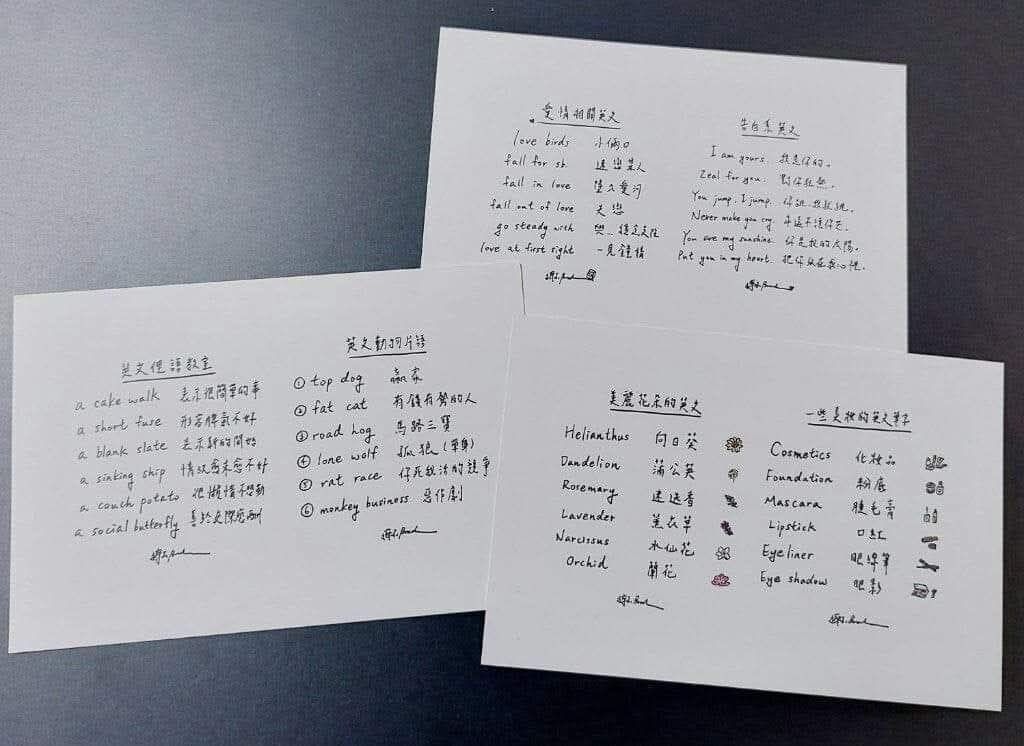 愛情相關英文
love birds 小倆口
fall for sb. 迷戀某人
fall in love 墜入愛河
fall out of love 失戀
go steady with 與...穩定交往
love at first sight 一見鍾情
告白系英文
I am yours. 我是你的。
Zeal for you. 對你狂熱。
You jump, I jump. 你跳,我就跳。
Never make you cry. 永遠不讓你哭。
You are my sunshine. 你是我的太陽。
Put you in my heart. 把你放在我心裡。
英文俚語教室
a cake walk 表示很簡單的事
a short fuse 形容脾氣不好
a blank slate 表示新的開始
a sinking ship 情況愈來愈不好
a couch potato 很懶惰不想動
a social butterfly 善於交際應酬
英文動物片語
① top dog 贏家
② fat cat 有錢有勢的人
③ road hog 馬路三寶
④ lone wolf 孤狼(單身)
⑤ rat race 你死我活的競爭
⑥ monkey business 惡作劇
美麗花朵的英文
Helianthus 向日葵
Dandelion 蒲公英
Rosemary 迷迭香
Lavender 薰衣草
Narcissus 水仙花
Orchid 蘭花
一些美妝的英文單字
Cosmetics 化妝品
Foundation 粉底
Mascara 睫毛膏
Lipstick 口紅
Eyeliner 眼線筆
Eye shadow 眼影